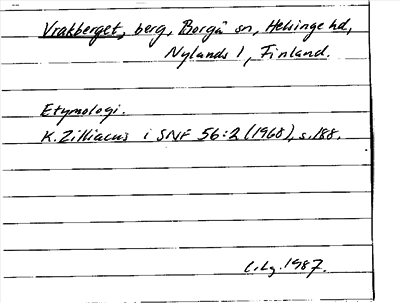 Vrakberget, berg, Borgå sn, Helsinge hd,
Nylands l, Finland.
Etymologi.
K. Zilliacus i SNF 56:2 (1968), s. 188.
1987.